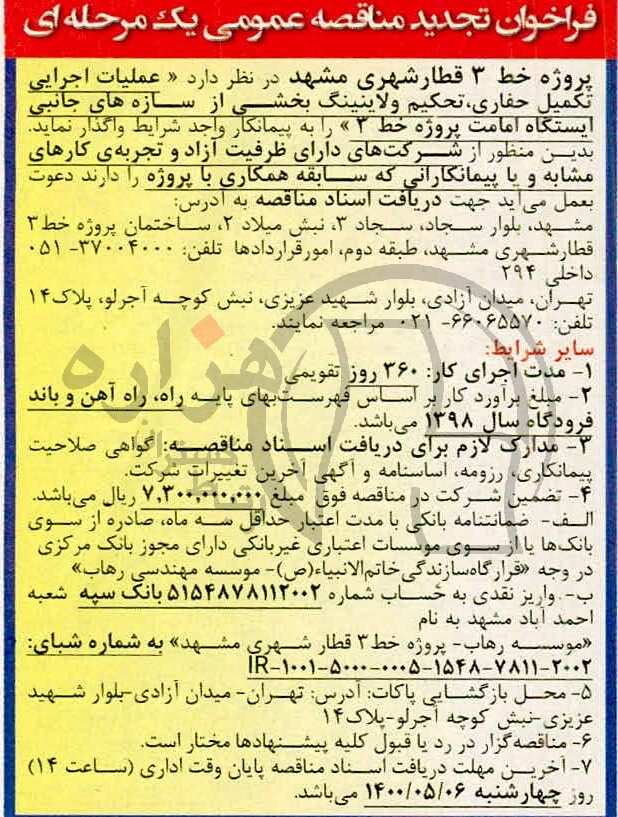 فراخوان تجدید مناقصه عمومی یک مرحله ای
پروژه خط ۳ قطارشهری مشهد در نظر دارد « عملیات اجرایی
تکمیل حفاری،تحکیم ولاینینگ بخشی از سازه های جانبی
ایستگاه امامت پروژه خط ۳ » را به پیمانکار واجد شرایط واگذار نماید.
بدین منظور از شرکت‌های دارای ظرفیت آزاد و تجربه‌ی کارهای
مشابه و یا پیمانکارانی که سابقه همکاری با پروژه را دارند دعوت
بعمل می‌آید جهت دریافت اسناد مناقصه به آدرس:
مشهد، بلوار سجاد، سجاد ۳، نبش میلاد ۲، ساختمان پروژه خط۳
قطارشهری مشهد، طبقه دوم، امورقراردادها تلفن: ۳۷۰۰۴۰۰۰- ۰۵۱
داخلی ۲۹۴
تهران، میدان آزادی، بلوار شهید عزیزی، نبش کوچه آجرلو، پلاک۱۴
تلفن: ۶۶۰۶۵۵۷۰- ۰۲۱ مراجعه نمایند.
سایر شرایط:
۱- مدت اجرای کار: ۳۶۰ روز تقویمی
۲- مبلغ برآورد کار بر اساس فهرست‌بهای پایه راه، راه آهن و باند
فرودگاه سال ۱۳۹۸ می‌باشد.
۳- مدارک لازم برای دریافت اسناد مناقصه: گواهی صلاحیت
پیمانکاری، رزومه، اساسنامه و آگهی آخرین تغییرات شرکت.
۴- تضمین شرکت در مناقصه فوق مبلغ ۷,۳۰۰,۰۰۰,۰۰۰ ریال می‌باشد.
الف- ضمانتنامه بانکی با مدت اعتبار حداقل سه ماه، صادره از سوی
بانک‌ها یا از سوی موسسات اعتباری غیربانکی دارای مجوز بانک مرکزی
در وجه «قرارگاه‌سازندگی‌خاتم‌الانبیاء(ص)- موسسه مهندسی رهاب»
ب- واریز نقدی به حساب شماره ۵۱۵۴۸۷۸۱۱۲۰۰۲ بانک سپه شعبه
احمد آباد مشهد به نام
«موسسه رهاب- پروژه خط۳ قطار شهری مشهد» به شماره شبای:
IR-۱۰۰۱-۵۰۰۰-۰۰۰۵-۱۵۴۸-۷۸۱۱-۲۰۰۲
۵- محل بازگشایی پاکات: آدرس: تهران- میدان آزادی-بلوار شهید
عزیزی-نبش کوچه آجرلو-پلاک۱۴
۶- مناقصه‌گزار در رد یا قبول کلیه پیشنهادها مختار است.
۷- آخرین مهلت دریافت اسناد مناقصه پایان وقت اداری (ساعت ۱۴)
روز چهارشنبه ۱۴۰۰/۰۵/۰۶ می‌باشد.
هزاره